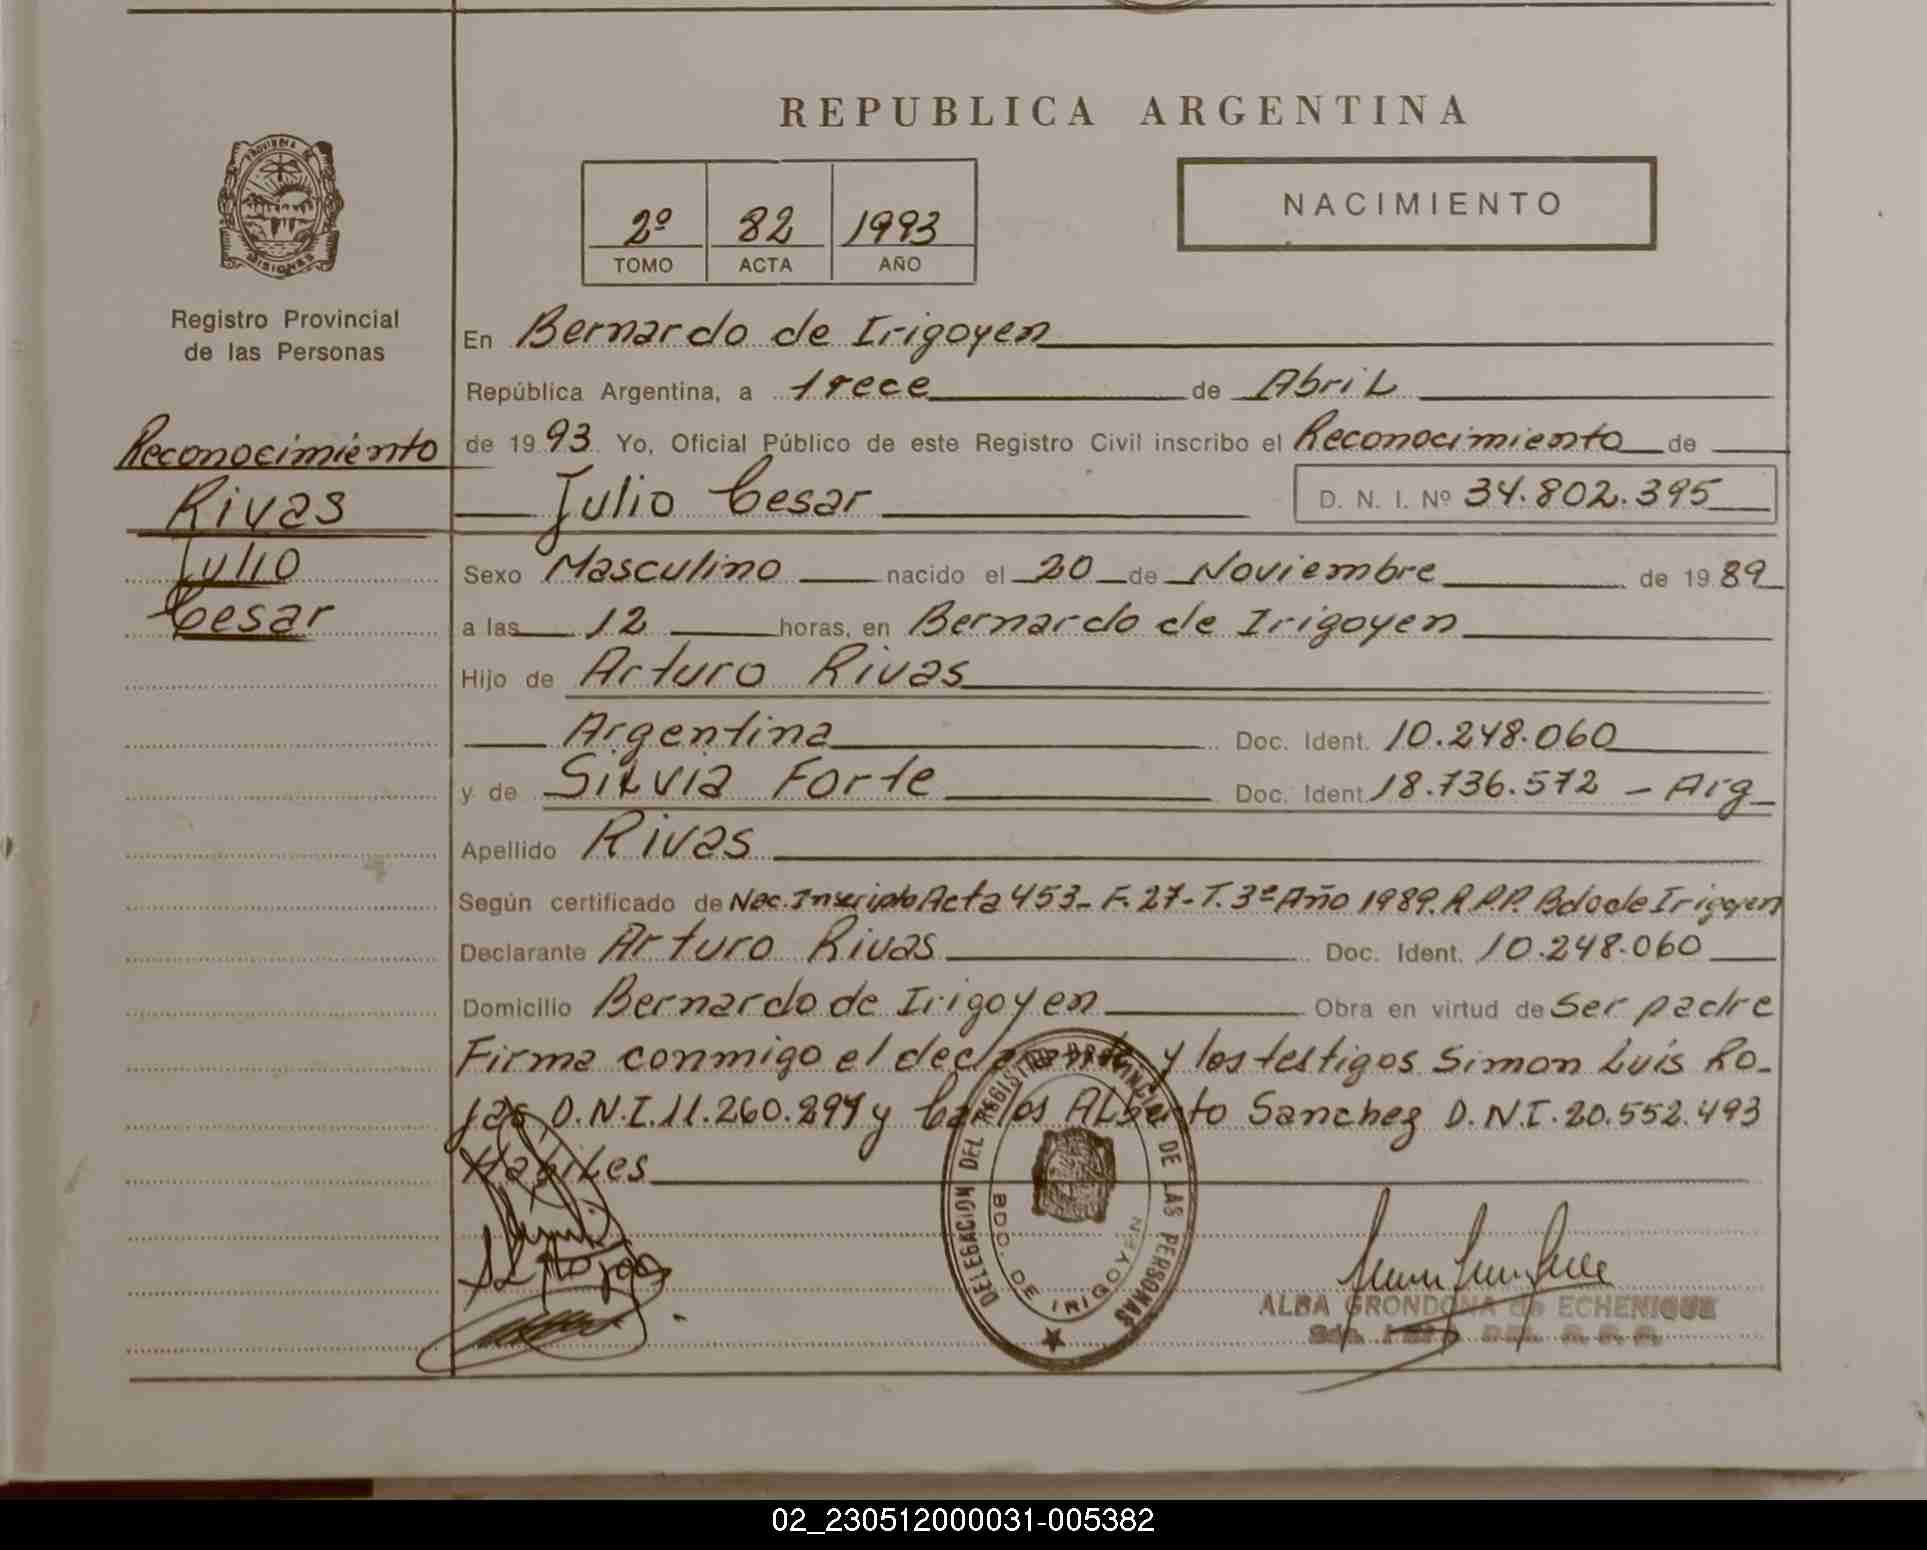 REPUBLICA ARGENTINA
PROVINCIA DE
MISIONES
Registro Provincial
de las Personas
2º 82 1993
TOMO ACTA AÑO
NACIMIENTO
Reconocimiento
Rivas
Julio
Cesar
En Bernardo de Irigoyen
República Argentina, a trece de Abril
de 1993 Yo, Oficial Público de este Registro Civil inscribo el Reconocimiento de
Julio Cesar D. N. I. Nº 34.802.395
Sexo Masculino nacido el 20 de Noviembre de 1989
a las 12 horas, en Bernardo de Irigoyen
Hijo de Arturo Rivas
Argentina Doc. Ident. 10.248.060
y de Silvia Forte Doc. Ident. 18.736.572 - Arg
Apellido Rivas
Según certificado de Nac. Inscripto Acta 453- F. 27- T. 3º Año 1989. R.P.P. Bdo de Irigoyen
Declarante Arturo Rivas Doc. Ident. 10.248.060
Domicilio Bernardo de Irigoyen Obra en virtud de Ser padre
Firma conmigo el declarante y los testigos Simon Luis Ro-
jas D.N.I. 11.260.297 y Carlos Alberto Sanchez D.N.I. 20.552.493
Habiles
DELEGACION DEL REGISTRO PROVINCIAL DE LAS PERSONAS
BDO. DE IRIGOYEN
ALBA GRONDONA de ECHENIQUE
02_230512000031-005382